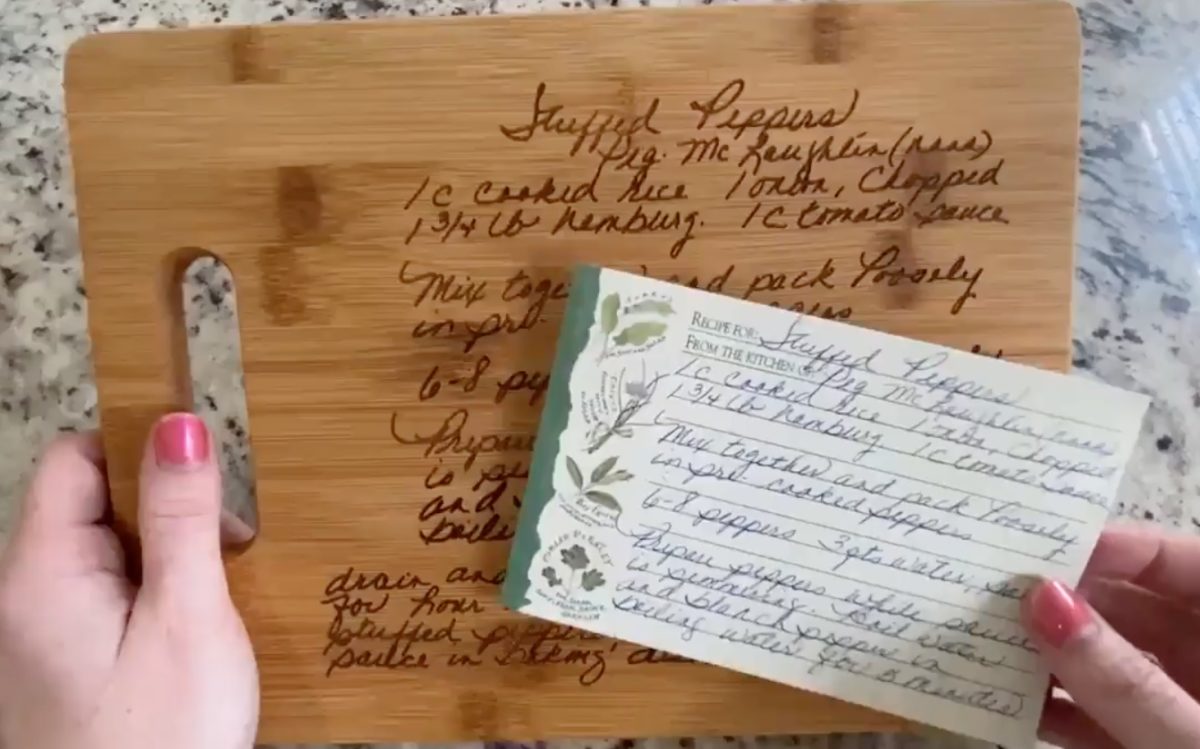 Stuffed Peppers
Peg. McLaughlin (nana)
1 c cooked rice 1 onion, chopped
1 3/4 lb hamburg. 1 c tomato sauce
Mix toge and pack loosely
in pre-
6-8 pe
Prepar
is
and
boili
drain and
for hour
stuffed peppers
sauce in baking
RECIPE FOR: Stuffed Peppers
FROM THE KITCHEN OF Peg McLaughlin (nana)
1 c cooked rice 1 onion, chopped
1 3/4 lb hamburg 1 c tomato sauce
Mix together and pack loosely
in pre-cooked peppers
6-8 peppers 3 qts water,
Prepare peppers while sauce
is simmering. Boil water
and blanch pepper in
boiling water for 5 minutes